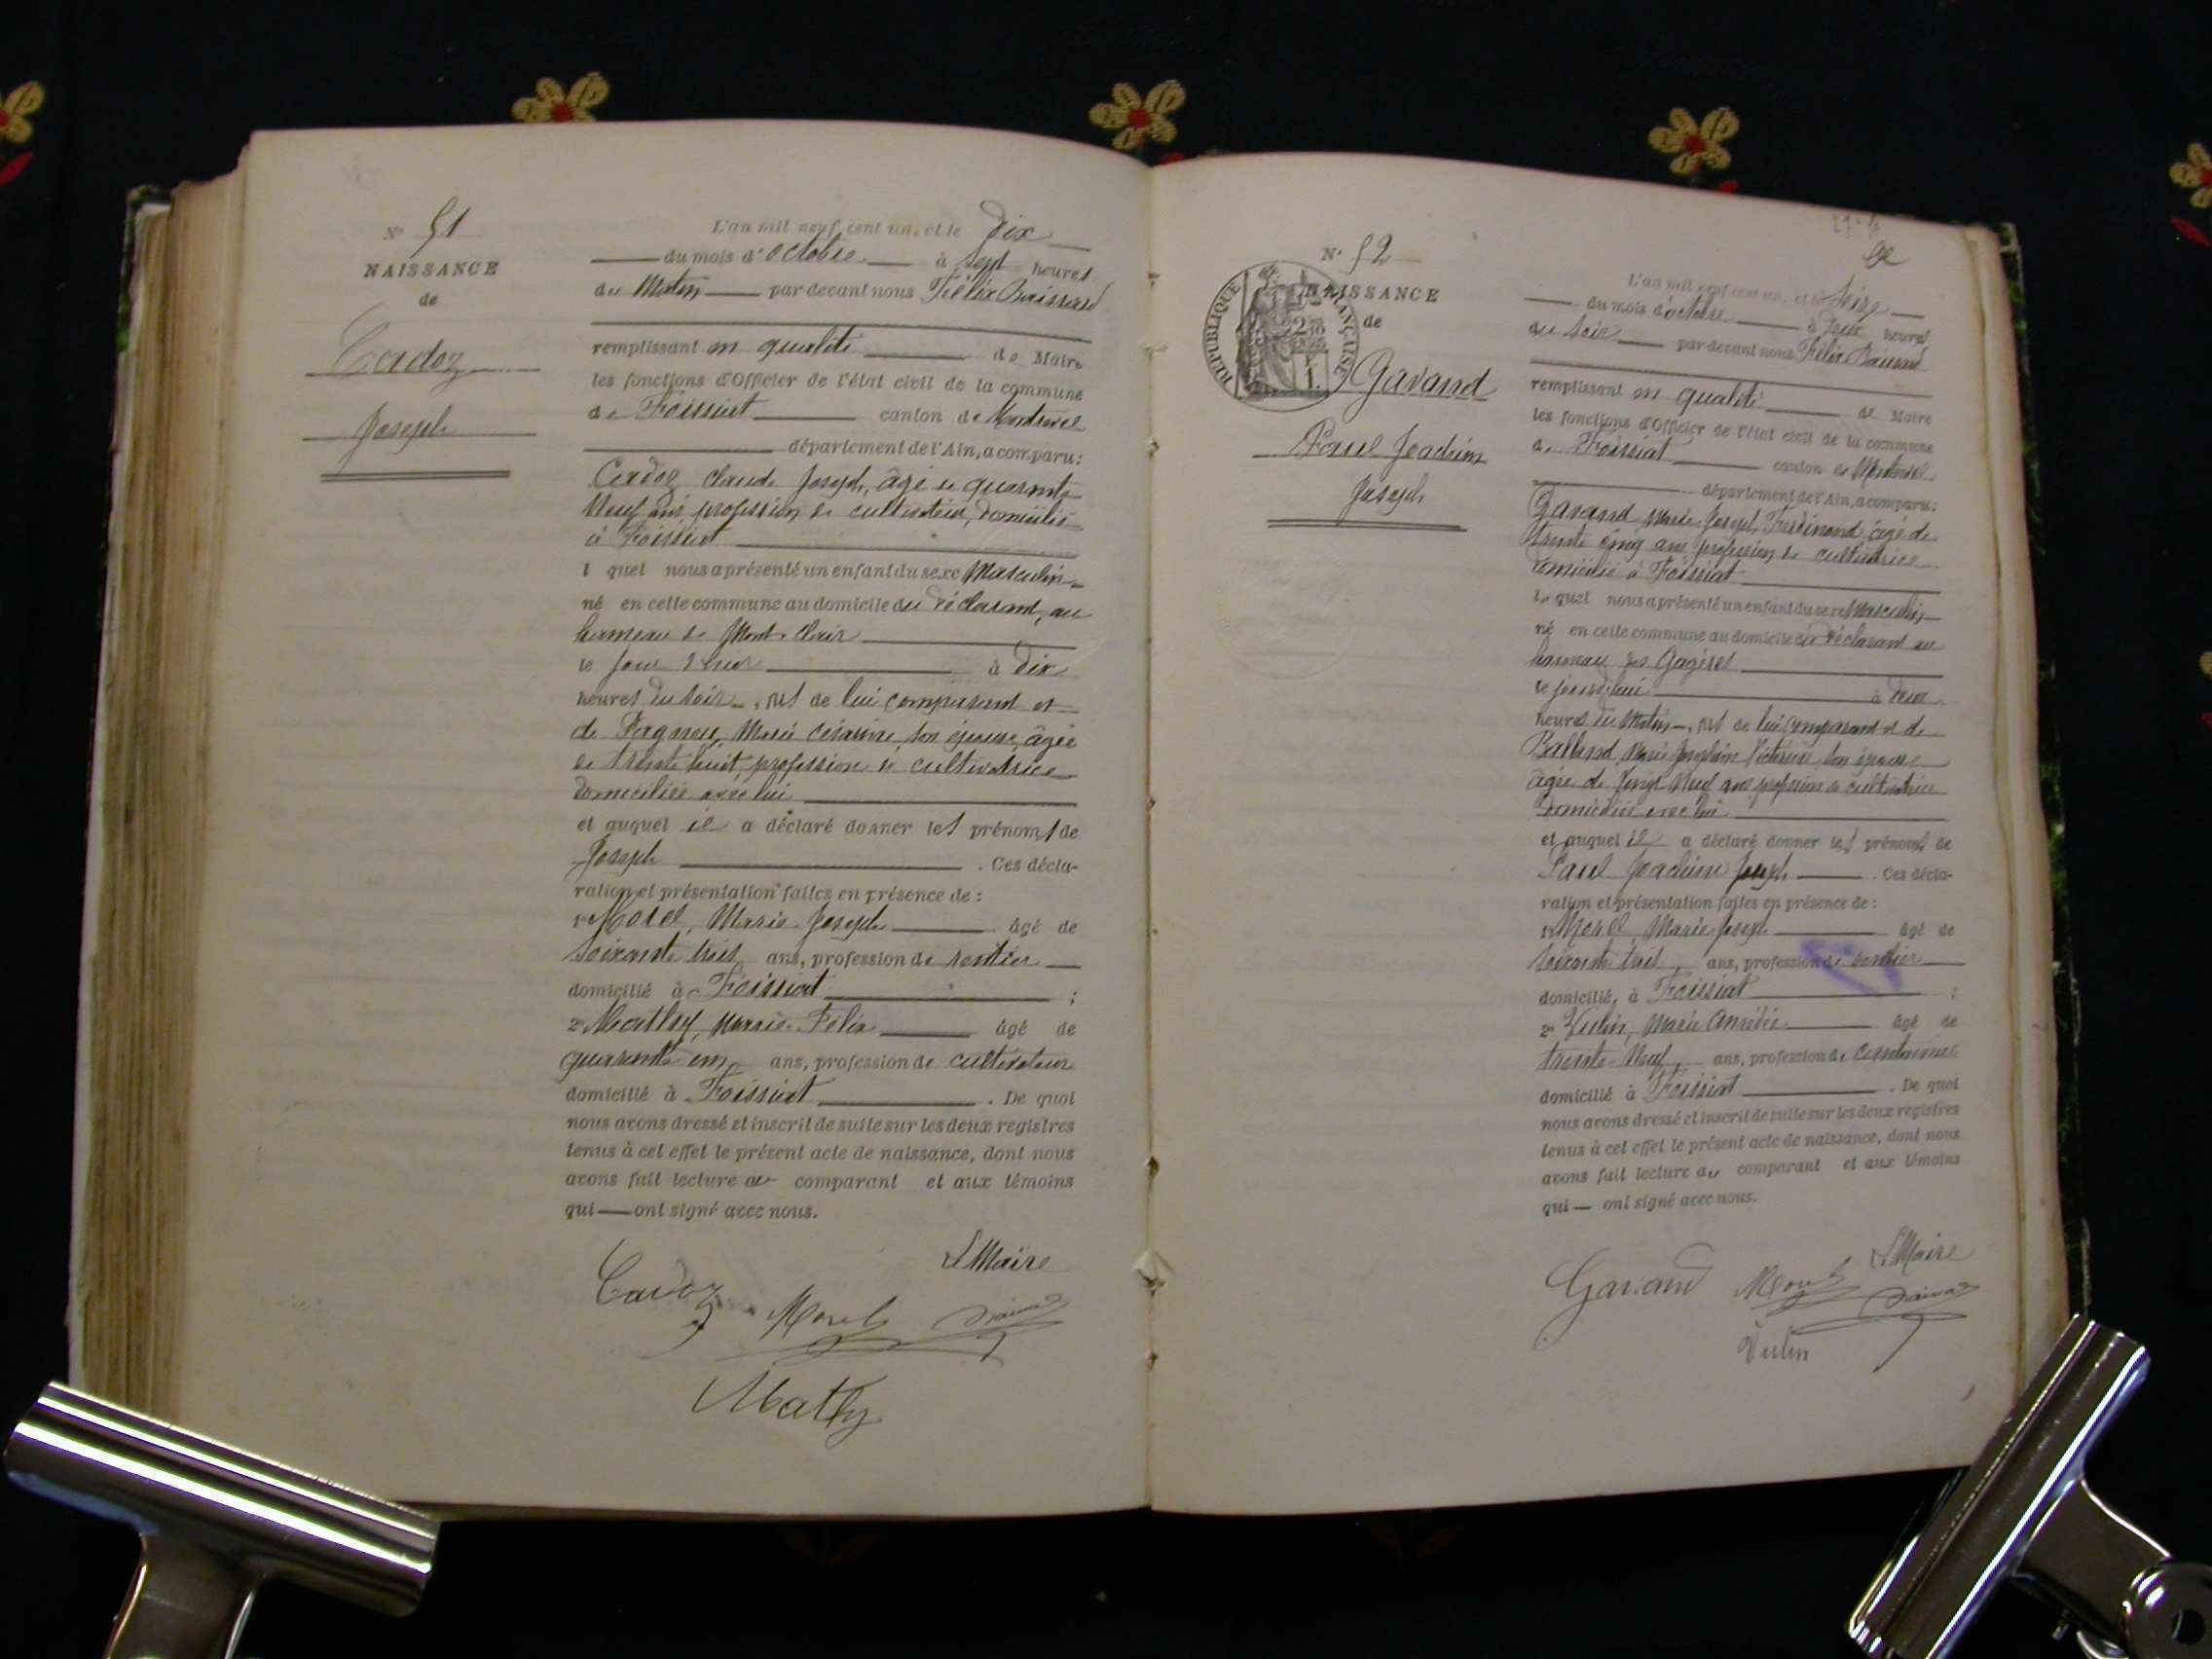 N° 51
NAISSANCE
de
Cadoz
Joseph
L'an mil neuf cent un, et le dix
du mois d'octobre à sept heures
du Matin par devant nous Félix
remplissant en qualité de Maire
les fonctions d'Officier de l'état civil de la commune
de Foissiat canton de Montrevel
département de l'Ain, a comparu:
Cadoz Claude Joseph, âgé de quarante
Neuf ans profession de cultivateur, domicilié
à Foissiat
l quel nous a présenté un enfant du sexe Masculin
né en cette commune au domicile du déclarant, au
hameau de Mont-clair
le jour d'hier à dix
heures du soir, fils de lui comparant et
de Marie césarine, son épouse, âgée
de trente huit, profession de cultivatrice
domiciliée avec lui
et auquel il a déclaré donner les prénoms de
Joseph . Ces décla-
ration et présentation faites en présence de :
1° Morel, Marie Joseph âgé de
soixante trois ans, profession de rentier
domicilié à Foissiat ;
2° Mathy, Marie Félix âgé de
quarante un ans, profession de cultivateur
domicilié à Foissiat . De quoi
nous avons dressé et inscrit de suite sur les deux registres
tenus à cet effet le présent acte de naissance, dont nous
avons fait lecture au comparant et aux témoins
qui — ont signé avec nous.
Le Maire
Cadoz Morel
Mathy
N° 52
NAISSANCE
de
REPUBLIQUE FRANÇAISE
Gavand
Paul Joachim
Joseph
L'an mil neuf cent un, et le seize
du mois d'octobre à deux heures
du soir par devant nous Félix
remplissant en qualité de Maire
les fonctions d'Officier de l'état civil de la commune
de Foissiat canton de Montrevel
département de l'Ain, a comparu:
Gavand Marie Joseph Ferdinand, âgé de
trente cinq ans profession de cultivatrice
domicilié à Foissiat
le quel nous a présenté un enfant du sexe Masculin
né en cette commune au domicile du déclarant au
hameau des
le jourd'hui à deux
heures du Matin, fils de lui comparant et de
Balland Marie Joséphine son épouse
âgée de vingt Neuf ans profession de cultivatrice
domiciliée avec lui
et auquel il a déclaré donner les prénoms de
Paul Joachim Joseph . Ces décla-
ration et présentation faites en présence de :
1° Morel, Marie Joseph âgé de
soixante trois, ans, profession de rentier
domicilié, à Foissiat ;
2° Vulin, Marie Amédée âgé de
trente Neuf, ans, profession de
domicilié à Foissiat . De quoi
nous avons dressé et inscrit de suite sur les deux registres
tenus à cet effet le présent acte de naissance, dont nous
avons fait lecture au comparant et aux témoins
qui — ont signé avec nous.
Le Maire
Gavand Morel
Vulin